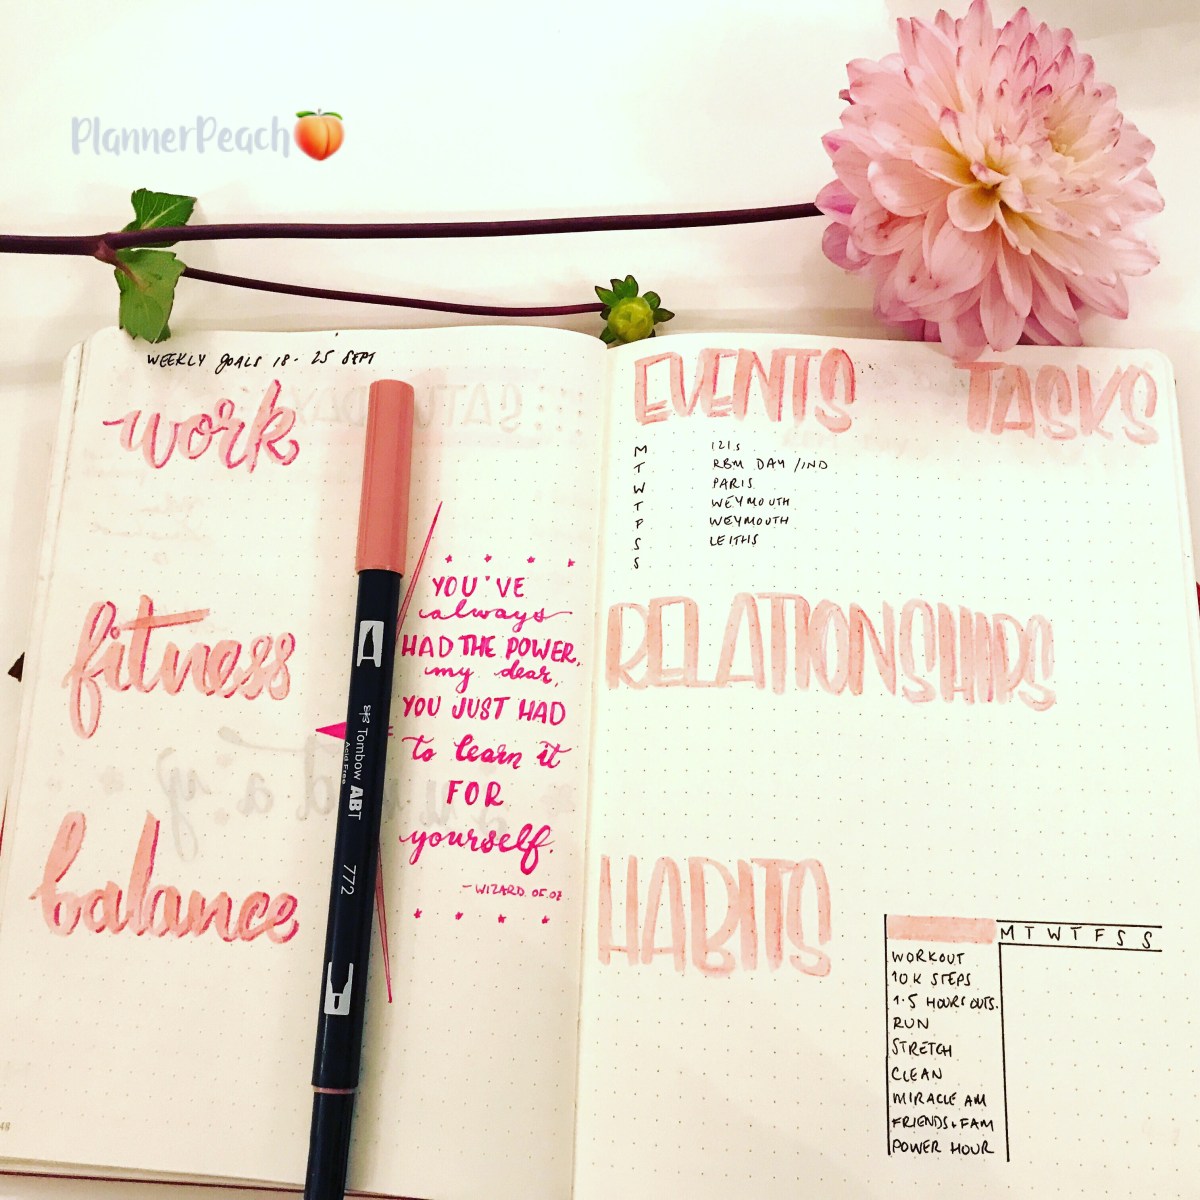 PlannerPeach
WEEKLY GOALS 18 - 25 SEPT
work
fitness
balance
YOU'VE
always
HAD THE POWER,
my dear,
YOU JUST HAD
to learn it
FOR
yourself.
- WIZARD OF OZ
Tombow ABT
Acid Free
772
EVENTS
TASKS
M 121s
T RBM DAY / IND
W PARIS
T WEYMOUTH
F WEYMOUTH
S LEITHS
S
RELATIONSHIPS
HABITS
M T W T F S S
WORKOUT
10K STEPS
1.5 HOURS OUTS.
RUN
STRETCH
CLEAN
MIRACLE AM
FRIENDS + FAM
POWER HOUR